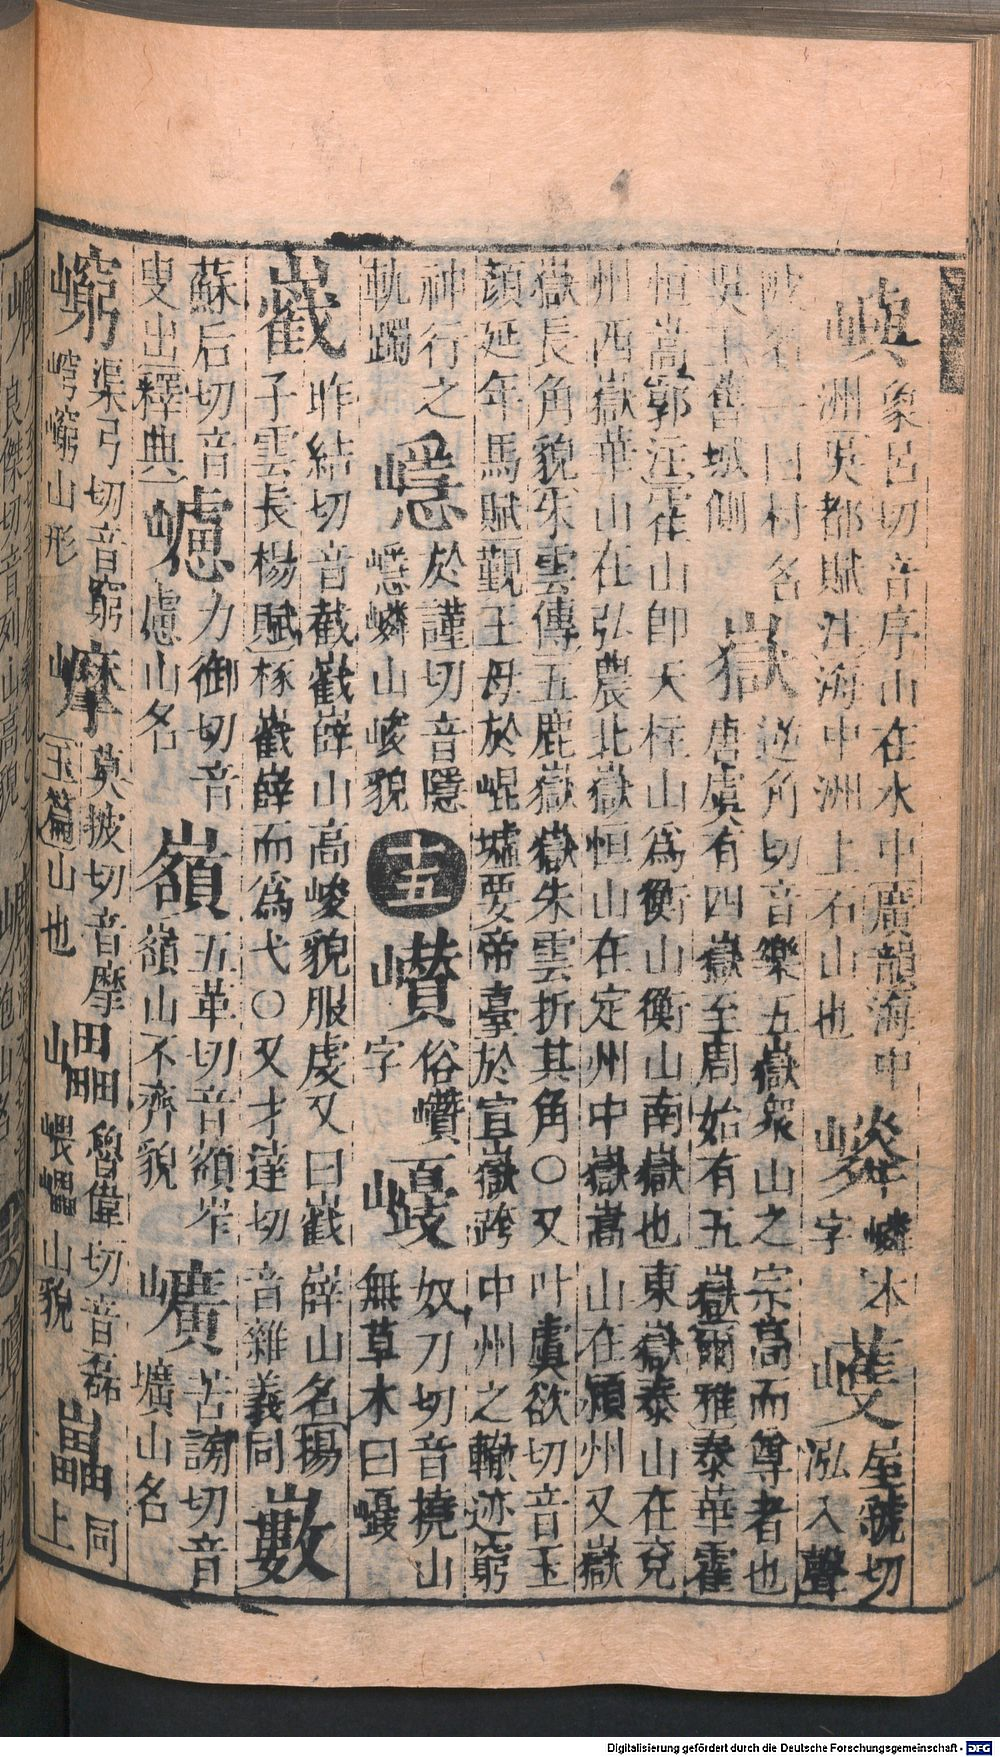 嶼
象呂切音序山在水中廣韻海中
洲吳都賦注海中洲上石山也
本
字
屋虢切
泓入聲
村名
吳王舊城側
嶽
逆角切音樂五嶽衆山之宗高而尊者也
唐虞有四嶽至周始有五嶽爾雅泰華霍
恒嵩郭注霍山即天柱山爲衡山衡山南嶽也東嶽泰山在兗
州西嶽華山在弘農北嶽恒山在定州中嶽嵩山在潁州又嶽
嶽長角貌朱雲傳五鹿嶽嶽朱雲折其角○又叶虞欲切音玉
顏延年馬賦覲王母於崐墟要帝臺於宣嶽跨中州之轍迹窮
神行之
軌躅
嶾
於謹切音隱
嶾嶙山峻貌
十五
俗巑
字
巎
奴刀切音撓山
無草木曰巎
巀
昨結切音截巀嶭山高峻貌服虔又曰巀嶭山名揚
子雲長楊賦椓巀嶭而爲弋○又才達切音雜義同
蘇后切音
叟出釋典
力御切音
慮山名
五革切音額岸
山不齊貌
苦謗切音
壙山名
渠弓切音窮
山形
莫披切音摩
玉篇山也
㠥
魯偉切音磊
㟪㠥山貌
同
上
Digitalisierung gefördert durch die Deutsche Forschungsgemeinschaft - DFG